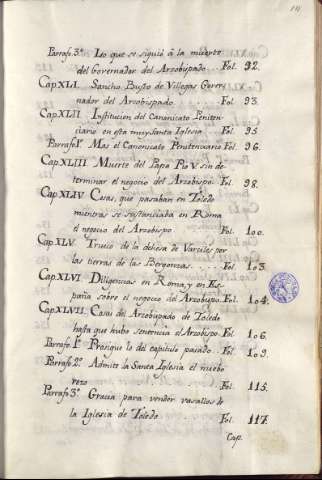 Parrafo 3.º Lo que se siguió á la muerte
del Governador del Arzobispado. Fol. 92.
Cap. XLI. Sancho Busto de Villegas Gover-
nador del Arzobispado. Fol. 93.
Cap. XLII. Institucion del Canonicato Peniten-
ciario en esta muy Santa Iglesia. Fol. 95.
Parrafo 1.º Mas el Canonicato Penitenciario. Fol. 96.
Cap. XLIII. Muerte del Papa Pio V. sin de-
terminar el negocio del Arzobispo. Fol. 98.
Cap. XLIV. Cosas, que pasaban en Toledo
mientras se substanciaba en Roma
el negocio del Arzobispo. Fol. 100.
Cap. XLV. Trueco de la dehesa de Varciles por
las tierras de las Bergonzas. Fol. 103.
Cap. XLVI. Diligencias en Roma, y en Es-
paña sobre el negocio del Arzobispo. Fol. 104.
Cap. XLVII. Cosas del Arzobispado de Toledo
hasta que hubo sentencia el Arzobispo. Fol. 106.
Parrafo 1.º Prosigue lo del capitulo pasado. Fol. 109.
Parrafo 2.º Admite la Santa Iglesia el nuebo
rezo Fol. 115.
Parrafo 3.º Gracia para vender vasallos de
la Iglesia de Toledo. Fol. 117.
Cap.